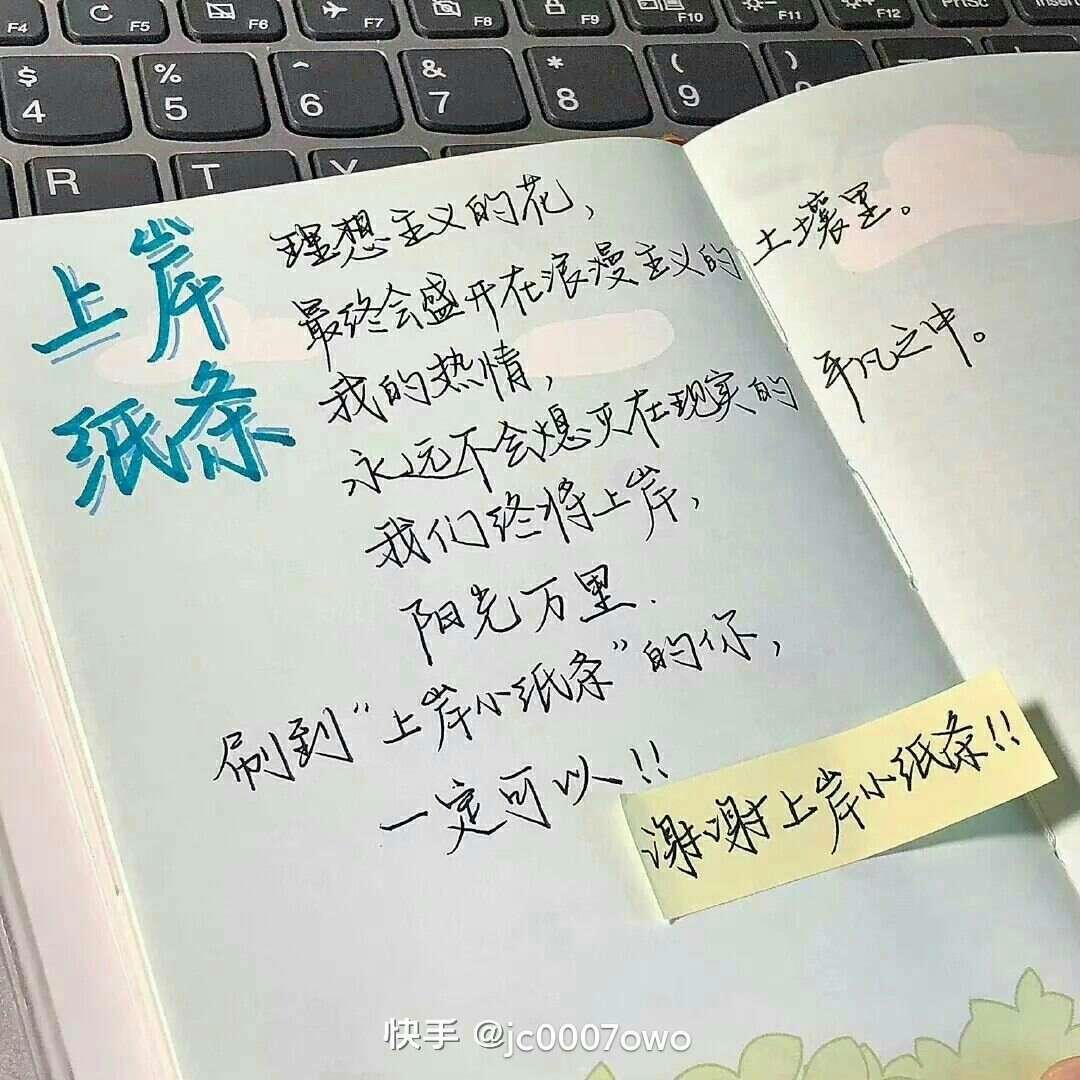 F4 F5 F6 F7 F8 F9 F10 F11 F12 PrtSc Insert
$ % ^ & * ( )
4 5 6 7 8 9
R T Y
上岸
纸条
理想主义的花，
最终会盛开在浪漫主义的土壤里。
我的热情，
永远不会熄灭在现实的平凡之中。
我们终将上岸，
阳光万里.
刷到“上岸小纸条”的你，
一定可以!!
谢谢上岸小纸条!!
快手 @jc0007owo